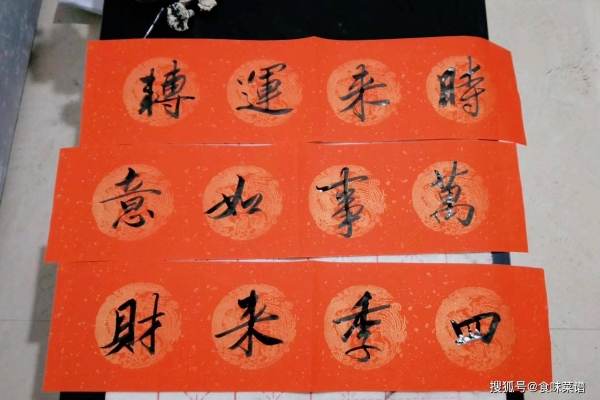 時来運轉
萬事如意
四季来財
搜狐号@食味菜谱